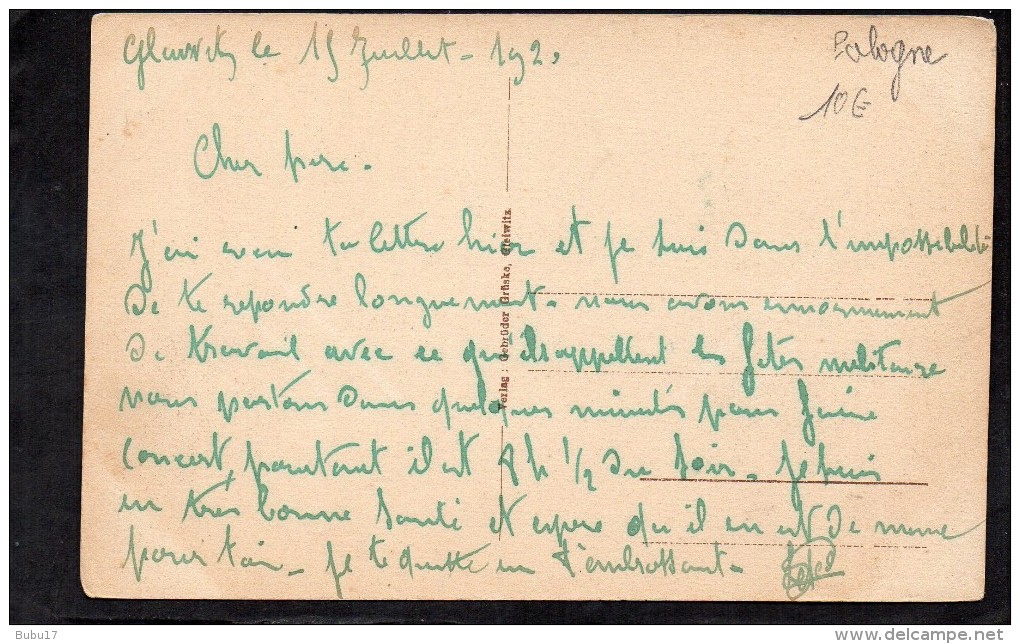 le 15 Juillet - 192.
Pologne
10€
Cher père.
J'ai reçu ta lettre hier et je suis dans l'impossibilité
de te repondre longuement - nous avons enormement
de travail avec ce qu'ils appellent les fêtes militaire
nous partons dans quelques minutes pour faire
concert, pourtant il est 8 h 1/2 du soir. je suis
en très bonne santé et espere qu'il en est de meme
pour toi - je te quitte en t'embrassant -
Verlag: Gebrüder Grüske, Gleiwitz.
Bubu17
delcampe.net